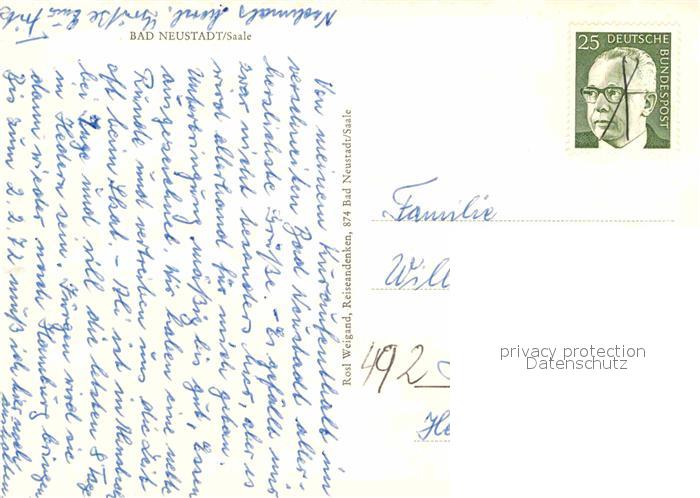 BAD NEUSTADT/Saale
Von meinem Kuraufenthalt im
verschneiten Bad Neustadt aller-
herzlichste Grüße. - Es gefällt mir
zwar nicht besonders hier, aber es
wird allerhand für mich getan.
Unterbringung mäßig bis gut, Essen
ausgezeichnet. Wir haben eine nette
Runde und vertreiben uns die Zeit
oft beim Skat. - ist in
bei Inge und will die letzten 8 Tage
in sein. Jürgen wird sie
dann wieder nach Hamburg bringen
Bis zum 2.2.72 muß ich hier noch
aushalten
Nochmals herzl. Grüße Euer Fritz
Rosl Weigand, Reiseandenken, 874 Bad Neustadt/Saale
25 DEUTSCHE
BUNDESPOST
Familie
Will
492
He
privacy protection
Datenschutz